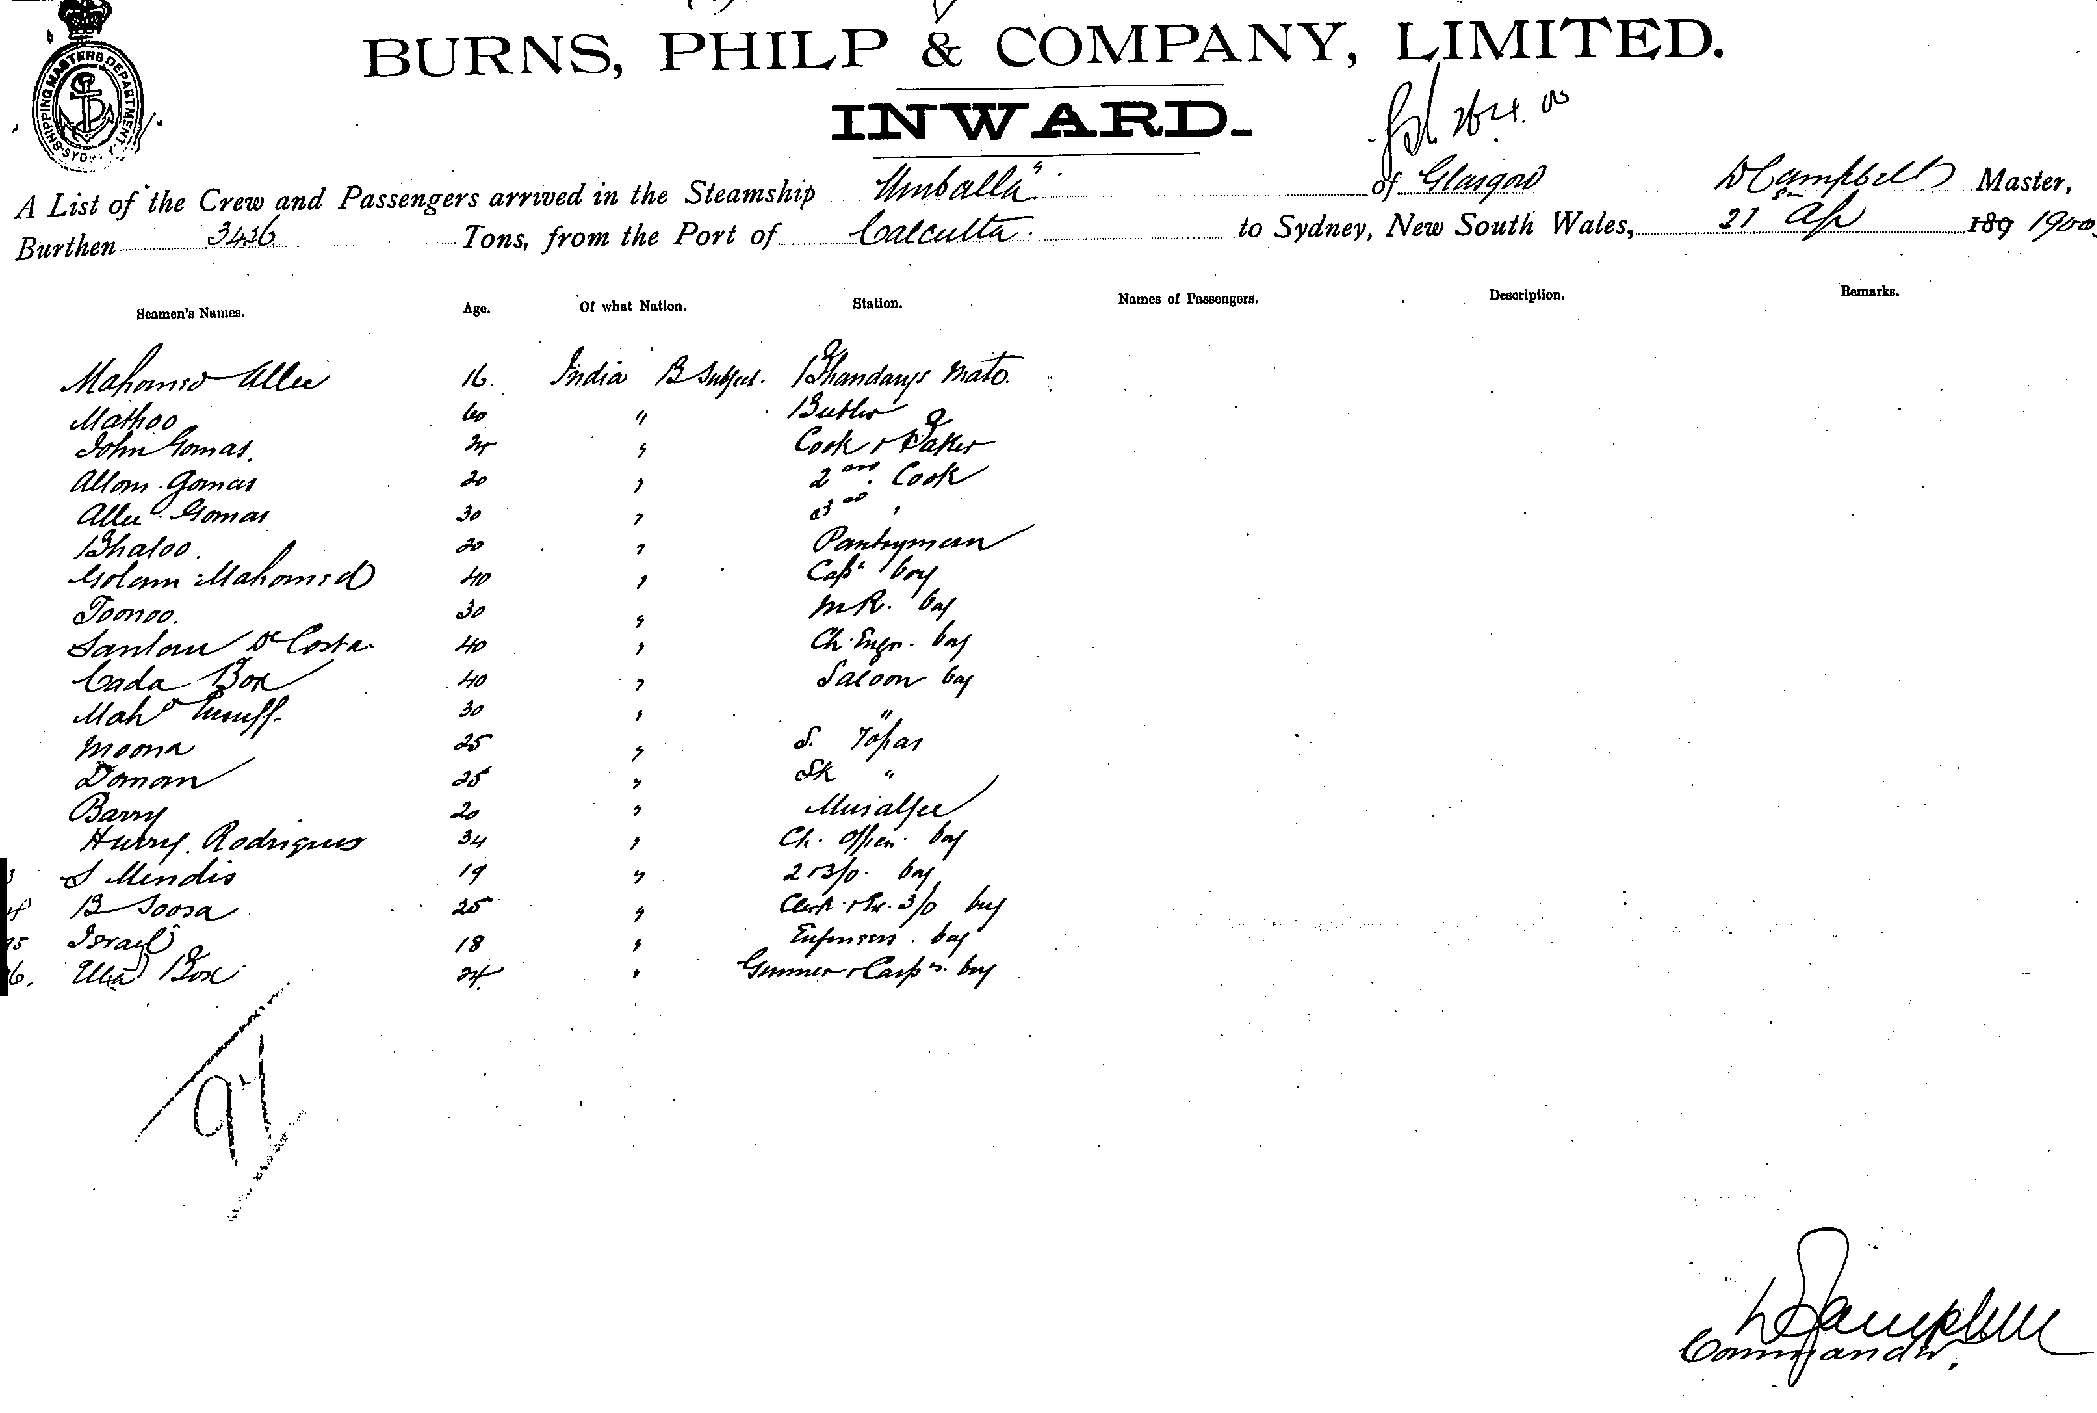 SHIPPING MASTERS DEPARTMENT SYDNEY
BURNS, PHILP & COMPANY, LIMITED.
INWARD.
26.4.00
A List of the Crew and Passengers arrived in the Steamship "Umballa" of Glasgow D Campbell Master,
Burthen 3436 Tons, from the Port of Calcutta. to Sydney, New South Wales, 21st Ap 189 1900.
Seamen's Names. Age. Of what Nation. Station. Names of Passengers. Description. Remarks.
Mahomed Allee 16. India B Subject. Bhandarys Mate.
Mathoo 60 " Butler
John Gomas. 24 " Cook & Baker
Allom Gomas 20 " 2nd Cook
Allee Gomas 30 " 3rd "
Bhaloo. 20 " Pantryman
Golam Mahomed 40 " Capt boy
Toonoo. 30 " M.R. boy
Santou De Costa. 40 " Ch. Engr. boy
Cada Box 40 " Saloon boy
Mahd 30 " "
Moona 25 " S. Topas
Doman 25 " Sk "
Barry 20 " Musaljee
Hurry Rodrigues 34 " Ch. Officer boy
S Mendis 19 " 2 & 3/0. boy
B Soosa 25 " Clerk & Ex. 3/0 boy
95 Israel 18 " boy
6. Ella Box 24 " Gunner & Carpr. boy
97
D Campbell
Commander.